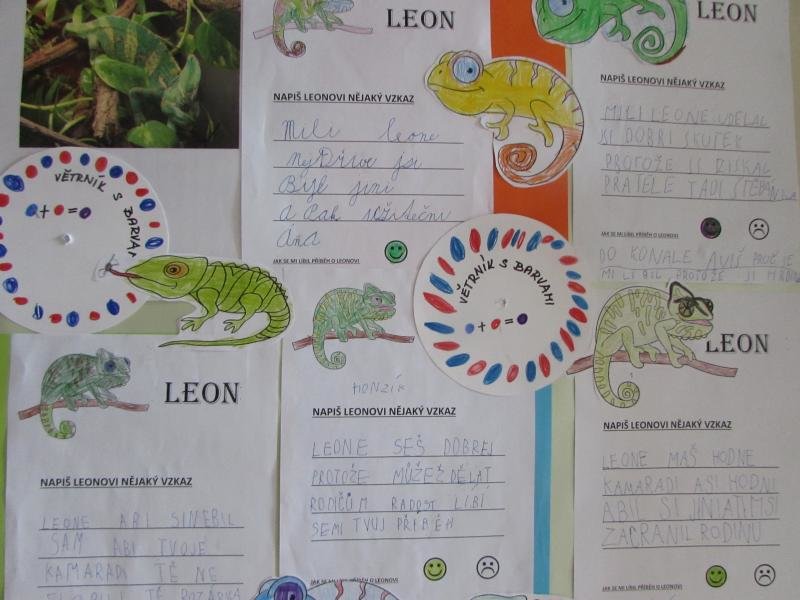 LEON
NAPIŠ LEONOVI NĚJAKÝ VZKAZ
Milí leone
jsi
Byl jiní
a pak
Ána
JAK SE MI LÍBIL PŘÍBĚH O LEONOVI
LEON
NAPIŠ LEONOVI NĚJAKÝ VZKAZ
MILI LEONE UDELAL
SI DOBRI SKUTEK
PROTOŽE ZISKAL
PŘATELE
JAK SE MI LÍBIL PŘÍBĚH O LEONOVI
DO KONALE
MI LIBIL PROTOŽE
VĚTRNÍK S BARVAMI
+ =
VĚTRNÍK S BARVAMI
+ =
LEON
NAPIŠ LEONOVI NĚJAKÝ VZKAZ
LEONE ABI
SAM ABI TVOJE
KAMARADI TĚ NE
HONZÍK
NAPIŠ LEONOVI NĚJAKÝ VZKAZ
LEONE SEŠ DOBREJ
PROTOŽE MŮŽEŽ DĚLAT
RODIČŮM RADOST LÍBÍ
SEMI TVUJ PŘÍBĚH
JAK SE MI LÍBIL PŘÍBĚH O LEONOVI
LEON
NAPIŠ LEONOVI NĚJAKÝ VZKAZ
LEONE MAŠ HODNE
KAMARADI ASI HODNI
ABIL SI
ZACRANIL RODINU
JAK SE MI LÍBIL PŘÍBĚH O LEONOVI